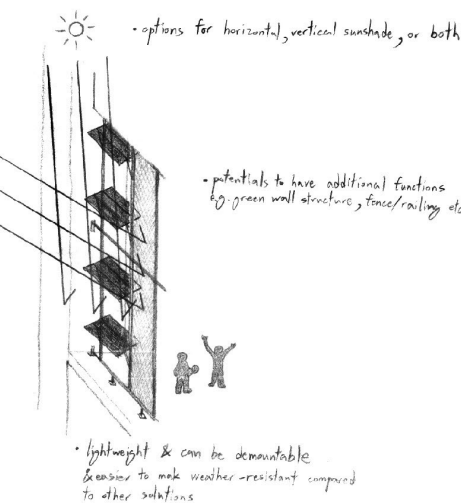 • options for horizontal, vertical sunshade, or both
• potentials to have additional functions
e.g. green wall structure, fence/railing etc
• lightweight & can be demountable
& easier to make weather-resistant compared
to other solutions